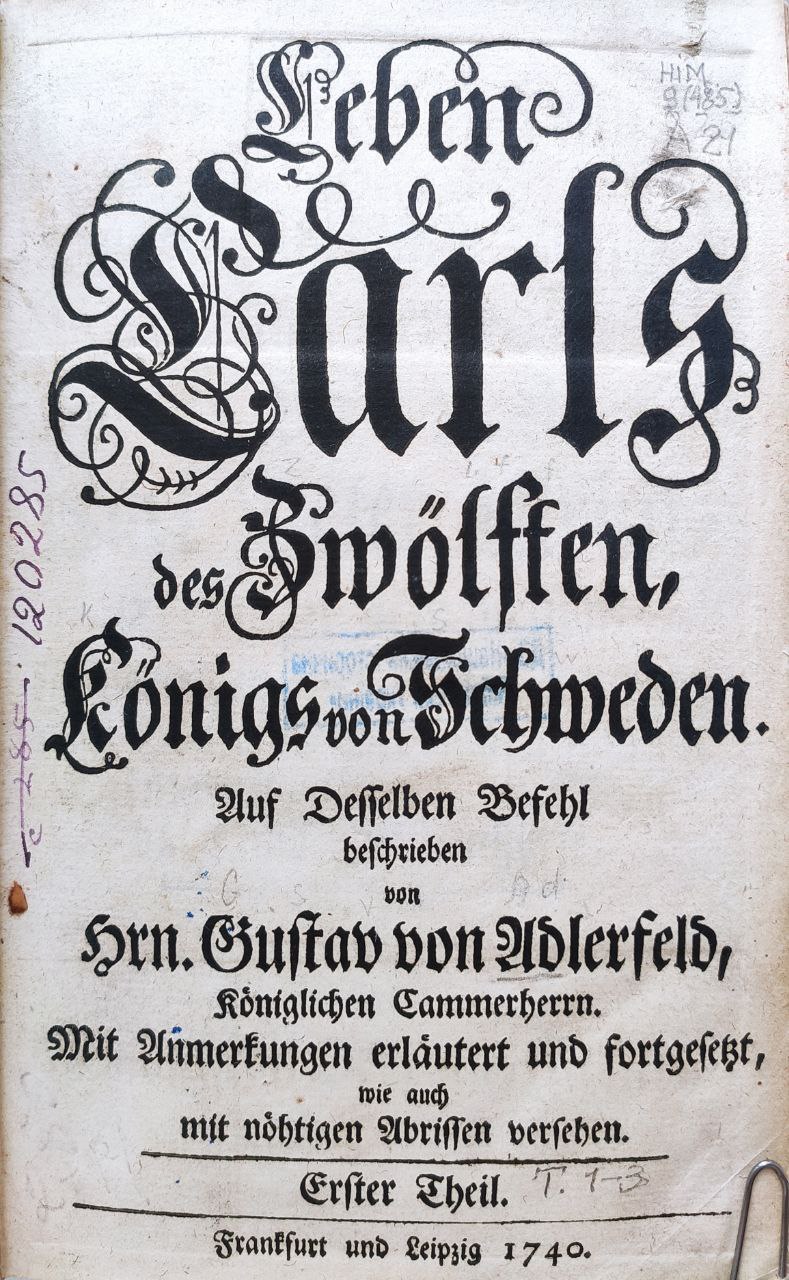 Leben
Carls
des Zwölften,
Königs von Schweden.
Auf Desselben Befehl
beschrieben
von
Hrn. Gustav von Adlerfeld,
Königlichen Cammerherrn.
Mit Anmerkungen erläutert und fortgesetzt,
wie auch
mit nöhtigen Abrissen versehen.
Erster Theil. T. 1-3
Frankfurt und Leipzig 1740.
HIM
9(485)
A 21
120285